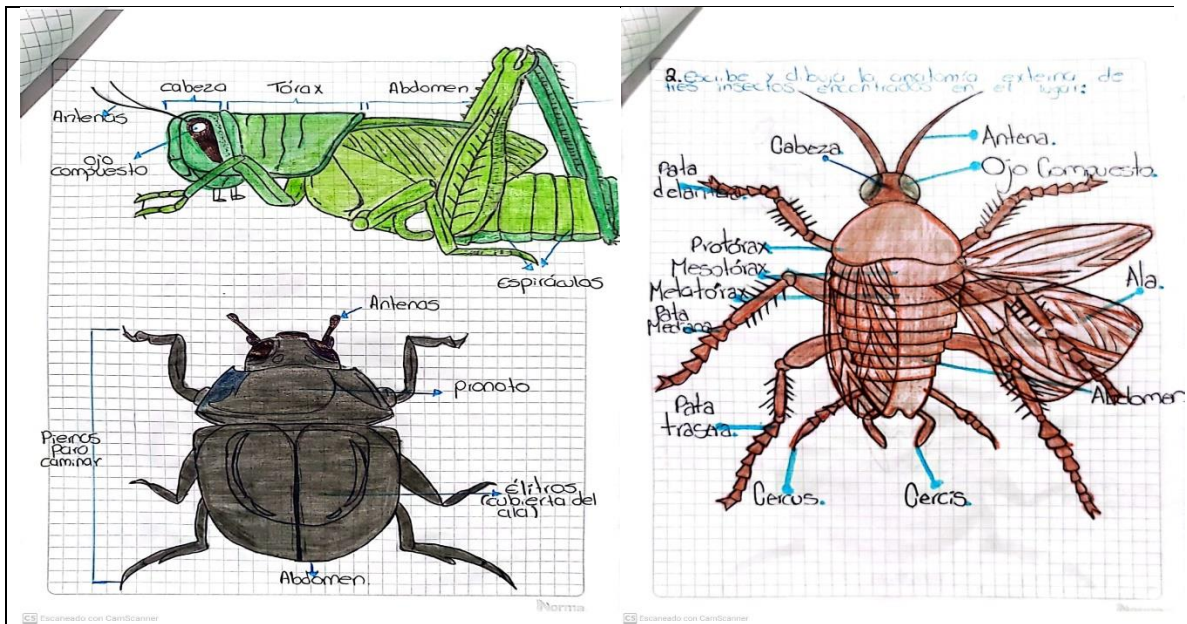 cabeza
Tórax
Abdomen
Antenas
ojo
compuesto
Espiráculos
Antenas
pronoto
Piernas
para
caminar
élitros
(cubierta del
ala)
Abdomen
Norma
CS Escaneado con CamScanner
2. Escribe y dibuja la anatomía externa de
tres insectos encontrados en el lugar:
Antena.
Cabeza.
Ojo Compuesto.
Pata
delantera.
Protórax
Mesotórax
Metatórax
Pata
Mediana
Ala.
Abdomen
Pata
trasera.
Cercus.
Cercis.
CS Escaneado con CamScanner